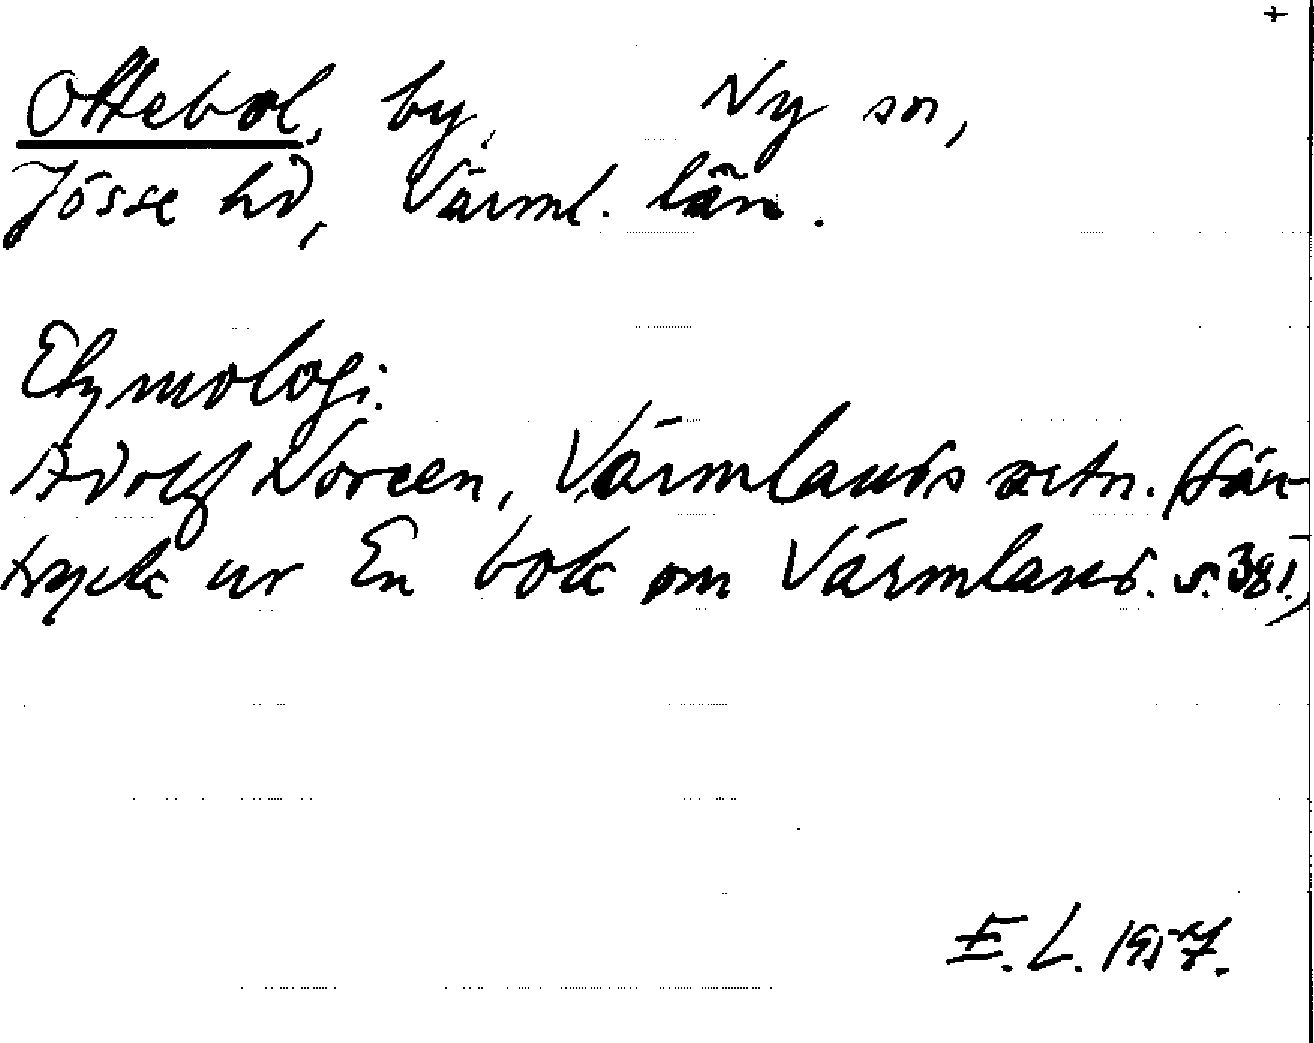 +
Ottebol, by, Ny sn,
Jösse hd, Värml. län.
Etymologi.
Adolf Noreen, Värmlands ortn. (Sär-
tryck ur En bok om Värmland. s. 38 f.)
E. L. 1957.